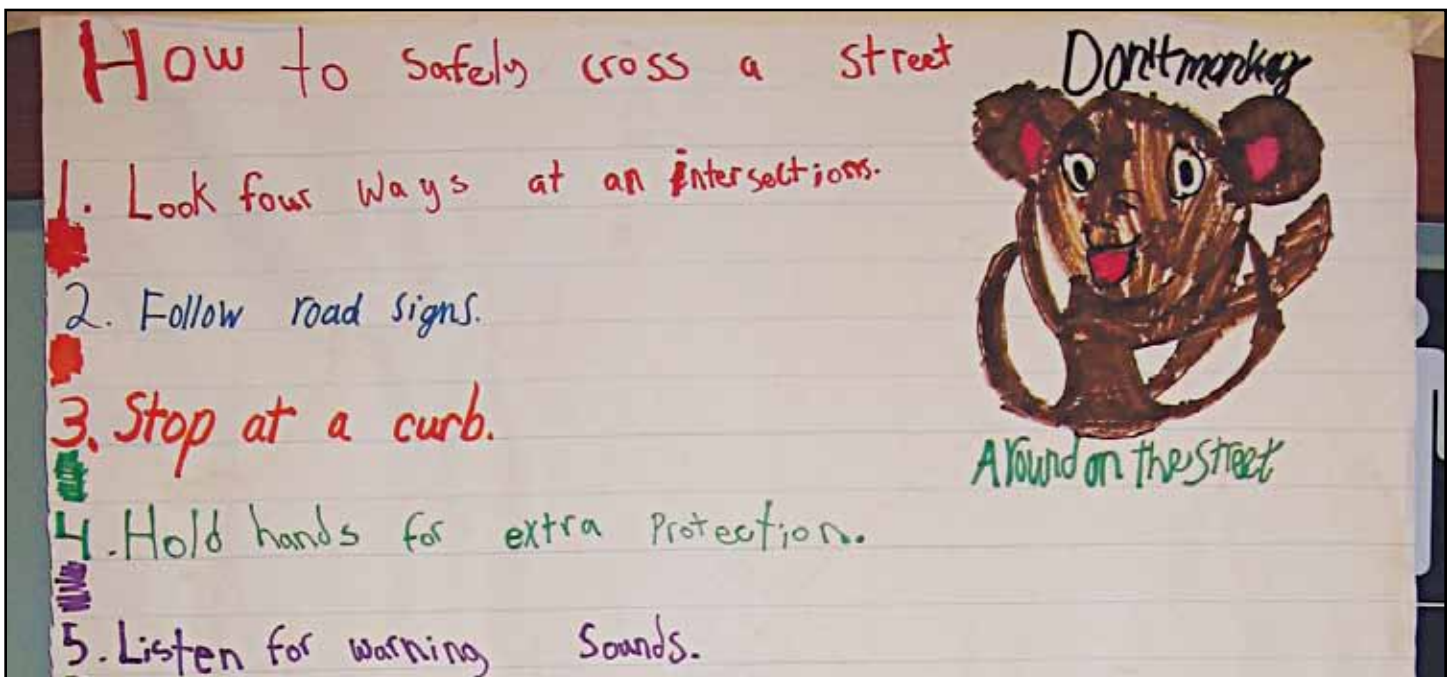 How to safely cross a street
Don't monkey
1. Look four ways at an intersections.
2. Follow road signs.
3. Stop at a curb.
Around on the street
4. Hold hands for extra Protection.
5. Listen for warning Sounds.